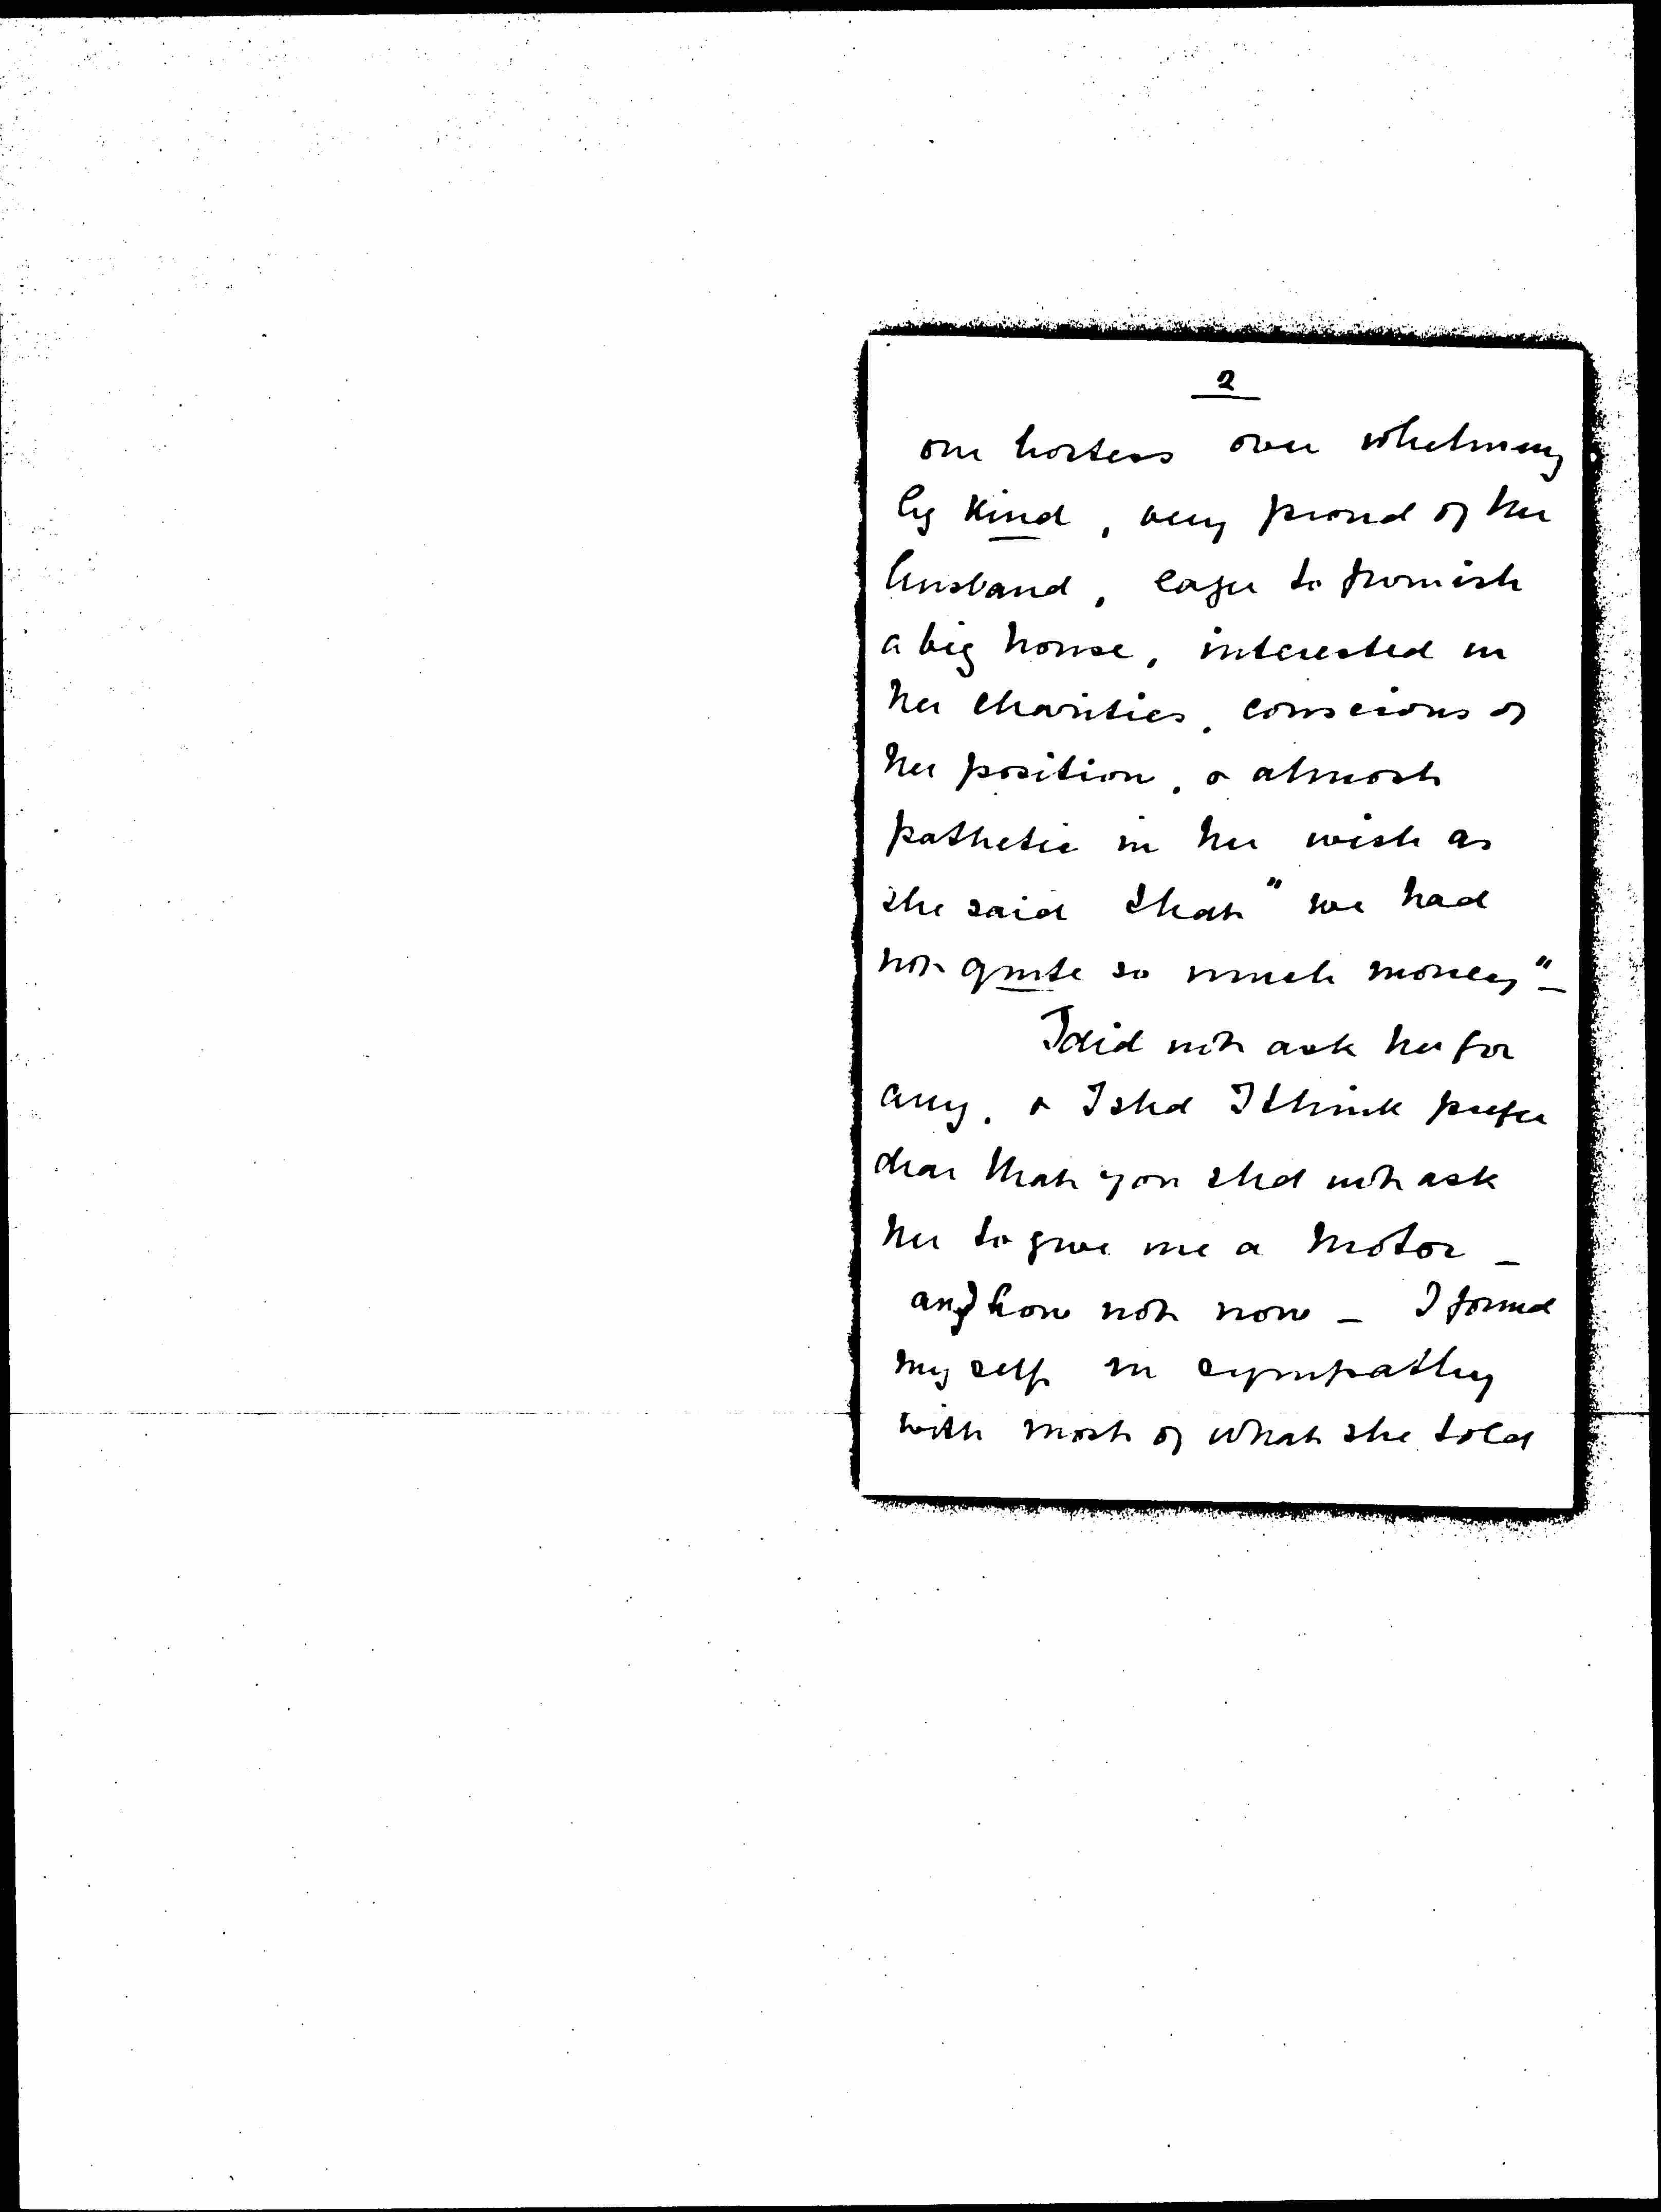 2
our hostess over whelming
ly kind, very proud of her
husband, eager to furnish
a big house, interested in
her charities, conscious of
her position, & almost
pathetic in her wish as
she said that "we had
not quite so much money" -
I did not ask her for
any. & I shd I think prefer
dear that you shd not ask
her to give me a motor -
anyhow not now - I found
my self in sympathy
with most of what she told